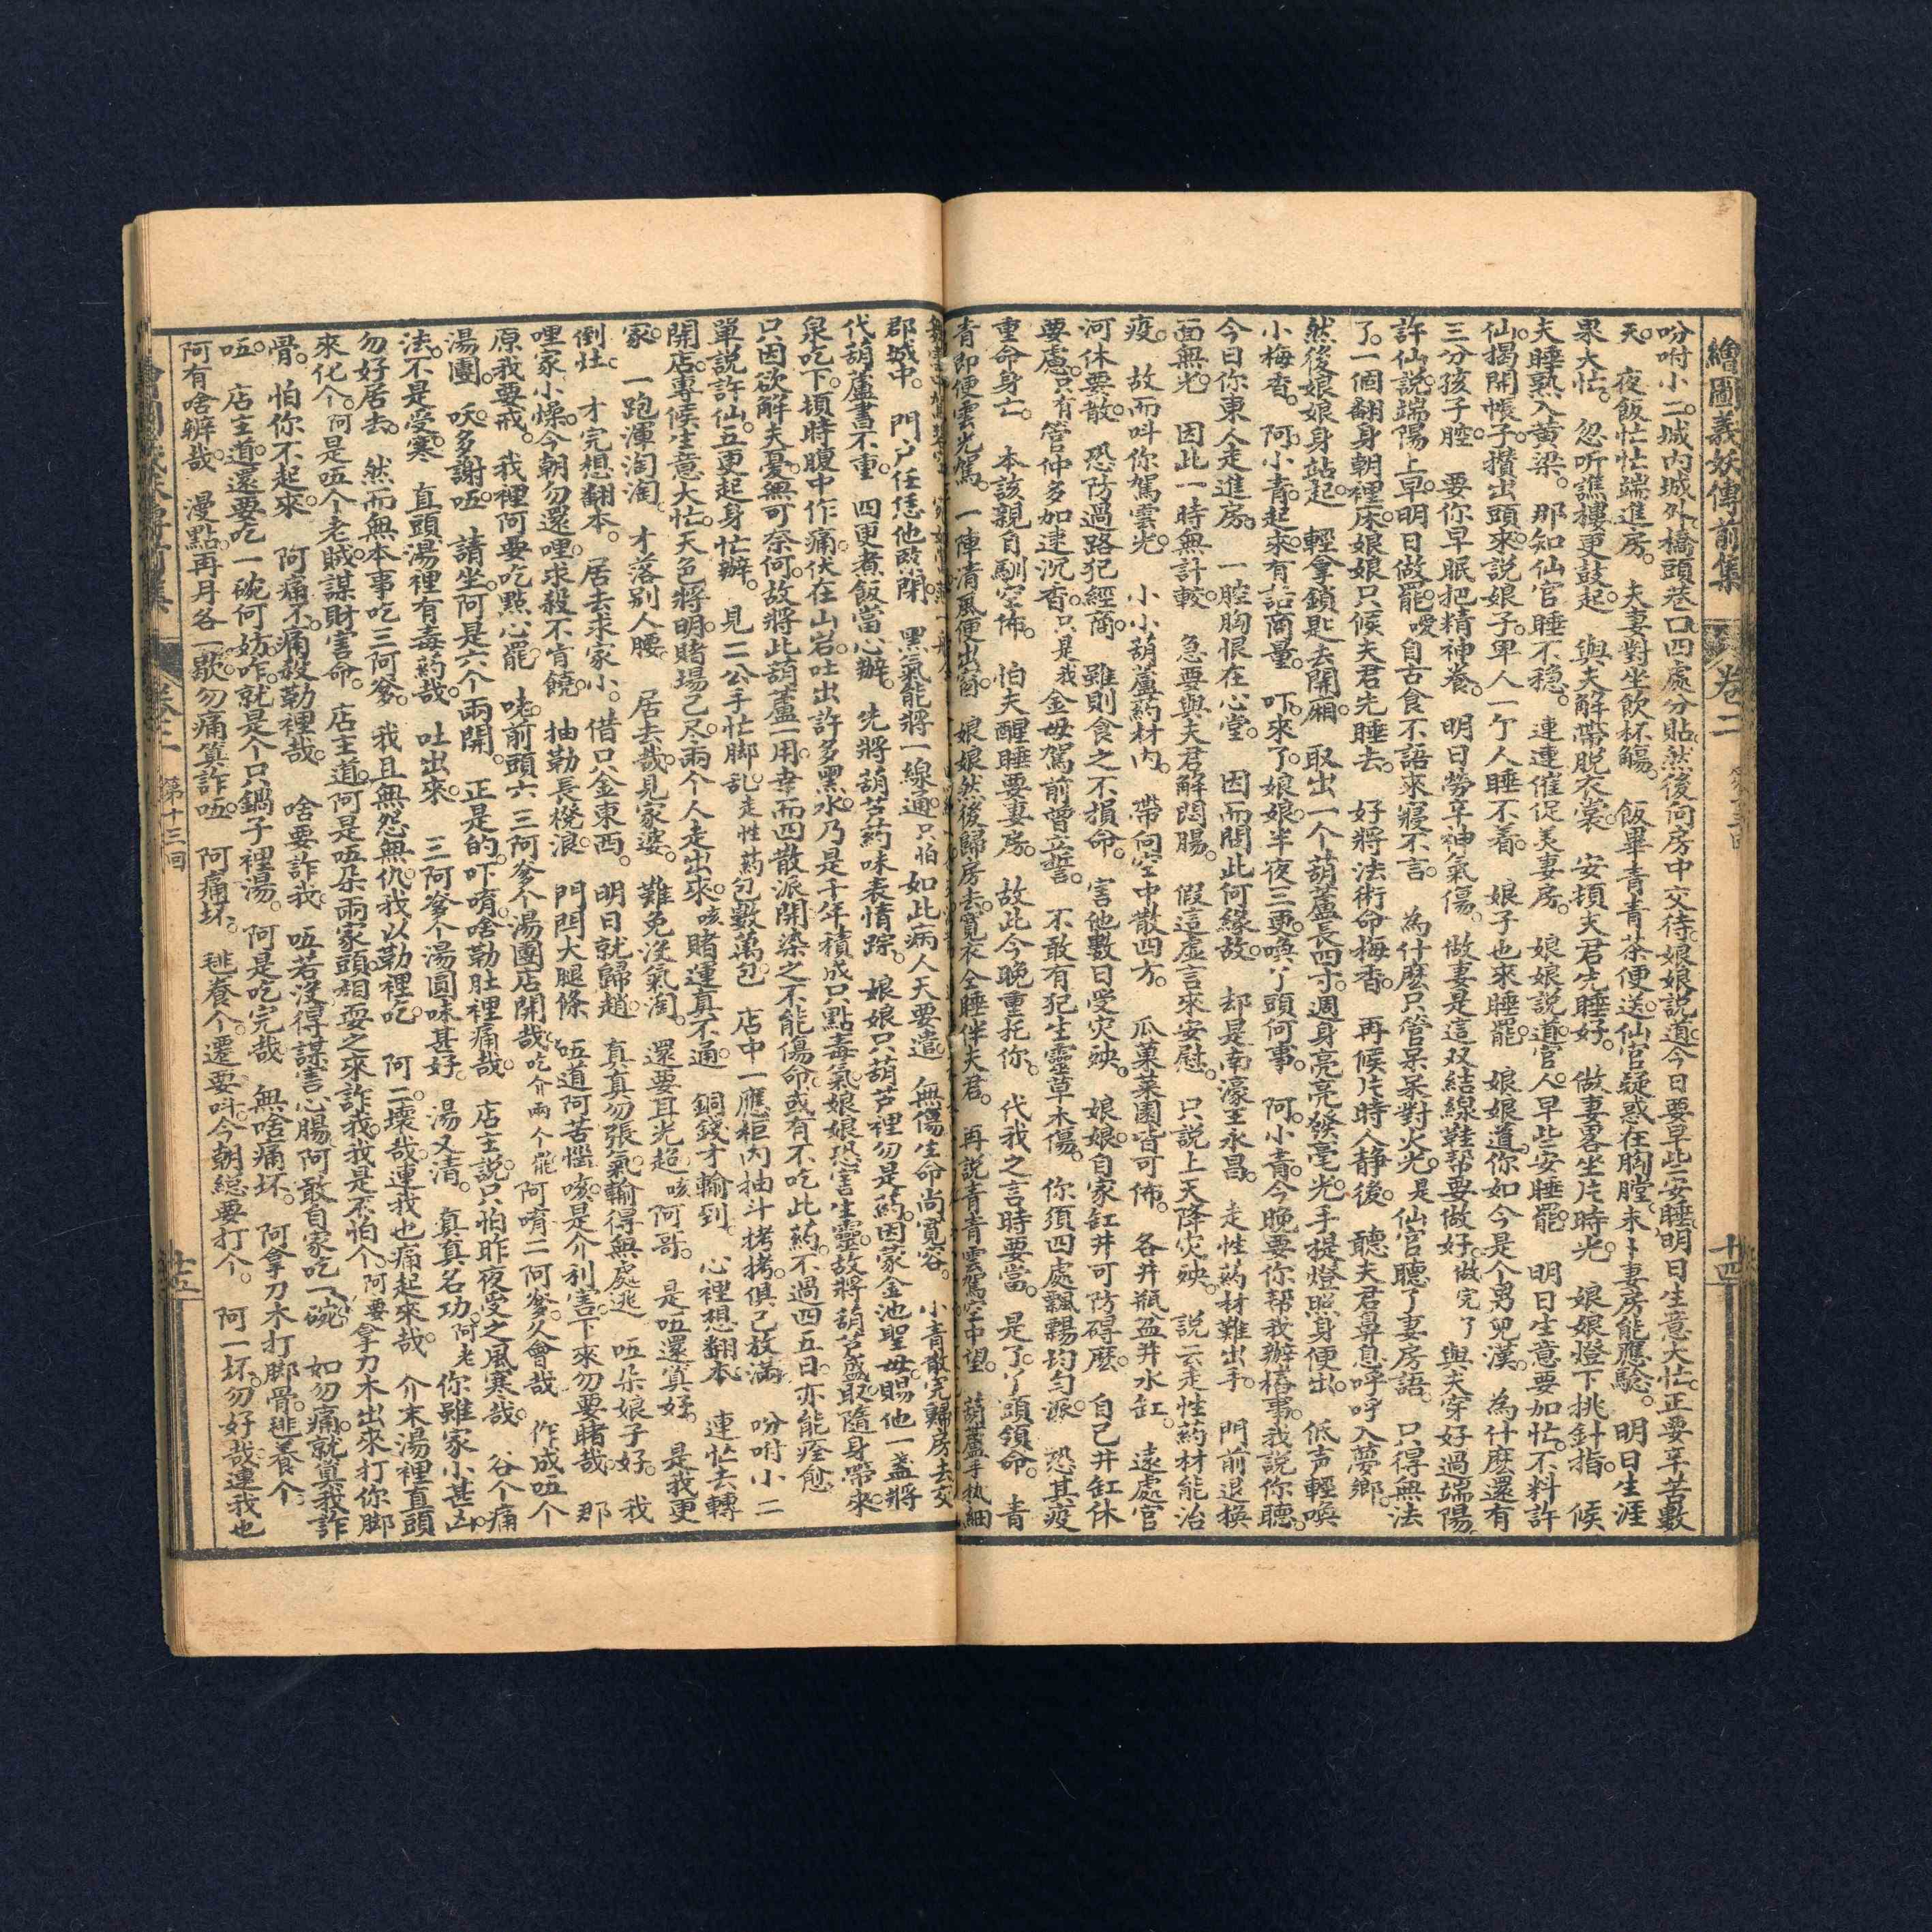 繪圖義妖傳前集 卷二 十四
吩咐小二。城內城外橋頭巷口四處分貼。然後向房中交待。娘娘說道。今日要早些安睡。明日生意大忙。正要辛苦數
天。夜飯忙忙端進房。夫妻對坐飲杯觴。飯畢青青茶便送。仙官疑惑在胸膛。未卜妻房能應驗。明日生涯
果大忙。忽听譙樓更鼓起。與夫解帶脫衣裳。安頓夫君先睡好。做妻畧坐片時光。娘娘燈下挑針指。候
夫睡熟入黃粱。那知仙官睡不穩。連連催促美妻房。娘娘說道。官人早些安睡罷。明日生意要加忙。不料許
仙揭開帳子。攢出頭來。說娘子。卑人一个人睡不着。娘子也來睡罷。娘娘道。你如今是个男兒漢。為什麽還有
三分孩子腔。要你早眠把精神養。明日勞辛神氣傷。做妻是這双結線鞋帮要做好。做完了與夫穿好過端陽。
許仙說。端陽上早。明日做罷。噯。自古食不語來寢不言。為什麽只管呆呆對火光。是仙官聽了妻房語。只得無法
了。一個翻身朝裡床。娘娘只候夫君先睡去。好將法術命梅香。再候片時人静後。聽夫君鼻息呼呼入夢鄉。
然後娘娘身站起。輕拿鎖匙去開廂。取出一个葫蘆長四寸。週身亮亮發毫光。手提燈照身便出。低声輕喚
小梅香。阿小青起來。有話商量。吓。來了。娘娘。半夜三更。喚丫頭何事。阿。小青。今晚要你帮我辦樁事。我說你聽。
今日你東人走進房。一腔胸恨在心堂。因而問此何緣故。却是南濠王永昌。走性药材難出手。門前退換
面無光。因此一時無計較。急要與夫君解悶腸。假這虛言來安慰。只說上天降灾殃。說云走性药材能治
疫。故而呌你駕雲光。小小葫蘆药材內。帶向空中散四方。瓜菓菜園皆可佈。各井瓶盆并水缸。遠處官
河休要散。恐防過路犯經商。雖則食之不損命。害他數日受灾殃。娘娘。自家缸井可防碍麽。自己井缸休
要慮。只有管仲多如速沉香。只是我金母駕前曾立誓。不敢有犯生靈草木傷。你須四處飄颺均勻派。恐其疫
重命身亡。本該親自馴空佈。怕夫醒睡要妻房。故此今晚重托你。代我之言時要當。是了。丫頭領命。青
青即便雲光駕。一陣清風便出窗。娘娘然後歸房去。寬衣仝睡伴夫君。再說青青雲駕空中望。葫蘆手执細
郡城中。門户任恁他啟閉。黑氣能將一線通。只怕如此病人天要遣。無傷生命尚寬容。小青散完歸房去交
代葫蘆書不重。四更煮飯當心辦。先將葫芦药味表情踪。娘娘只葫芦裡勿是药。因蒙金池聖母。賜他一盞將
泉吃下。頃時腹中作痛。伏在山岩。吐出許多黑水。乃是千年積成只點毒氣。娘娘恐害生靈。故將葫芦盛取。隨身帶來
只因欲解夫憂。無可奈何。故將此葫蘆一用。幸而四散派開。染之不能傷命。或有不吃此药。不過四五日。亦能痊愈
單說許仙。五更起身忙辦。見二公手忙脚乱。走性药包數萬包。店中一應柜內抽斗拷拷。俱已放滿。吩咐小二
開店。專候生意大忙。天色將明賭場已尽。兩个人走出來。咳。賭運真不通。銅錢才輸到。心裡想翻本。連忙去轉
家。一跑渾淘淘。才落別人腰。居去哉見家婆。難免沒氣淘。還要耳光超。咳。阿哥。是唔還寘好。是我更
倒灶。才完想翻本。居去求家小。借只金東西。明日就歸趙。真真勿張氣。輸得無處逃。唔朵娘子好。我
哩家小燥。今朝勿還哩。求殺不肯饒。抽勒長櫈浪。門閂大腿條。唔道阿苦惱。咳。是介利害。下來勿要賭哉。那
原我要戒。我裡阿要吃點心罷。哓。前頭六三阿爹个湯團店開哉。吃介兩个罷。阿唷二阿爹。久會哉。作成唔个
湯團。呅多謝唔。請坐。阿是六个兩開。正是的。吓唷。啥勒肚裡痛哉。店主說。只怕昨夜受之風寒哉。谷个痛
法。不是受寒。直頭湯裡有毒药哉。吐出來。三阿爹个湯圓味甚好。湯又清。真真名功。阿老。你雖家小甚凶。
勿好居去。然而無本事吃三阿爹。我且無怨無仇。我以勒裡吃。阿二壞哉。連我也痛起來哉。介末湯裡直頭
來化个。阿是唔个老賊。謀財害命。店主道。阿是唔朵兩家頭相耍之來詐我。我是不怕个。阿要拿刀木出來打你脚
骨。怕你不起來。阿痛不痛。殺勒裡哉。啥要詐我。唔若沒得謀害心腸。阿敢自家吃一碗。如勿痛。就寘我詐
唔。店主道。還要吃一碗何妨。咋就是个只鍋子裡湯。阿是吃完哉。無啥痛坏。阿拿刀木打脚骨。毴養个。
阿有啥辨哉。漫點。再月各一歇。勿痛算詐唔。阿痛坏。毴養个。還要呌。今朝總要打个。阿一坏。勿好哉。連我也
卷二 第十三回